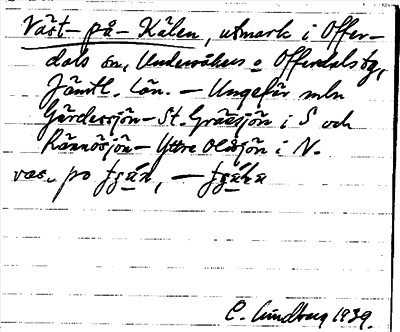 Väst-på-Kälen, utmark i Offer-
dals sn, Undersåkers o Offerdals tg,
Jämtl. län. – Ungefär mln
Gärdessjön – St. Grässjön i S och
Rännösjön – Yttre Oldsjön i N.
på
C. Lundberg 1939.